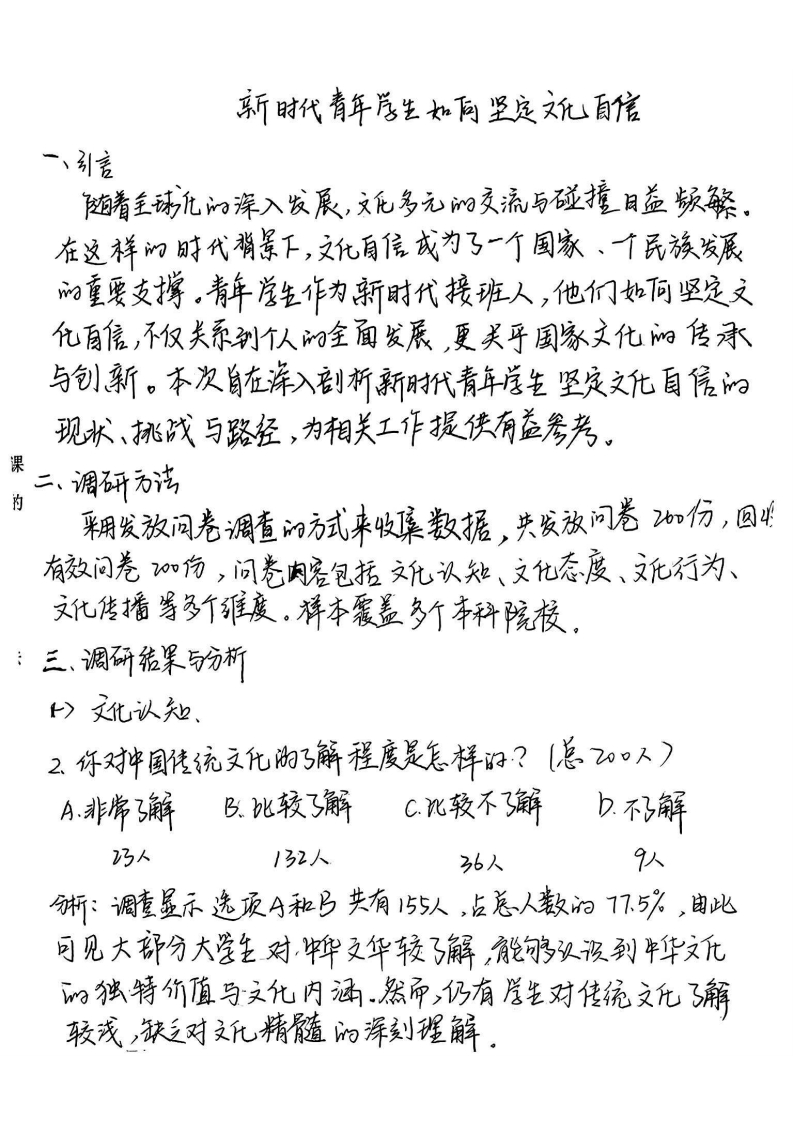 新时代青年学生如何坚定文化自信
一、引言
随着全球化的深入发展,文化多元的交流与碰撞日益频繁。
在这样的时代背景下,文化自信成为了一个国家、一个民族发展
的重要支撑。青年学生作为新时代接班人,他们如何坚定文
化自信,不仅关系到个人的全面发展,更关乎国家文化的传承
与创新。本次旨在深入剖析新时代青年学生坚定文化自信的
现状、挑战与路径,为相关工作提供有益参考。
课
二、调研方法
的
采用发放问卷调查的方式来收集数据,共发放问卷200份,回收
有效问卷200份,问卷内容包括文化认知、文化态度、文化行为、
文化传播等多个维度。样本覆盖多个本科院校。
三、调研结果与分析
(一)文化认知、
2.你对中国传统文化的了解程度是怎样的?(总200人)
A.非常了解 B.比较了解 C.比较不了解 D.不了解
23人 132人 36人 9人
分析:调查显示选项A和B共有155人,占总人数的77.5%,由此
可见大部分大学生对中华文华较了解,能够认识到中华文化
的独特价值与文化内涵。然而,仍有学生对传统文化了解
较浅,缺乏对文化精髓的深刻理解。